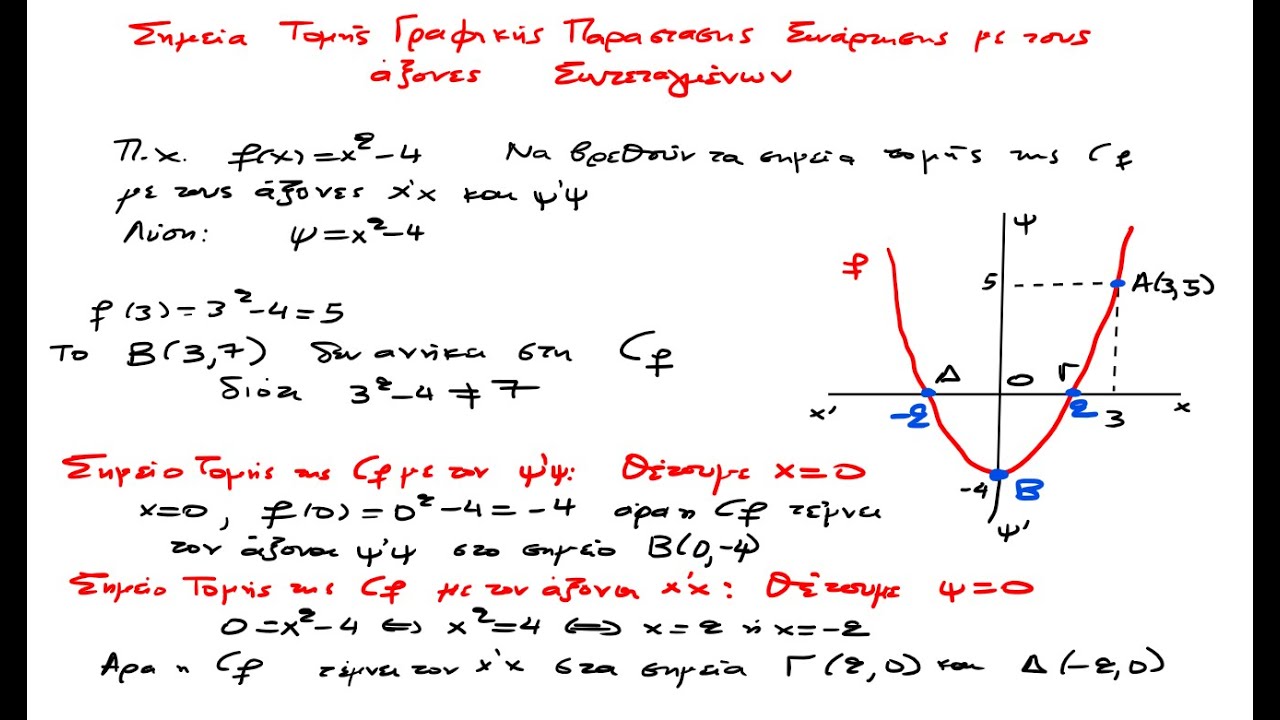 Σημεία Τομής Γραφικής Παράστασης Συνάρτησης με τους
άξονες Συντεταγμένων
Π.χ. f(x)=x²-4 Να βρεθούν τα σημεία τομής της Cf
με τους άξονες x'x και ψ'ψ
Λύση: ψ=x²-4
f(3)=3²-4=5
Το Β(3,7) δεν ανήκει στη Cf
διότι 3²-4≠7
ψ
f
5
Α(3,5)
Δ
Ο
Γ
x'
-2
2
3
x
-4
Β
ψ'
Σημείο Τομής της Cf με τον ψ'ψ: Θέτουμε x=0
x=0, f(0)=0²-4=-4 άρα η Cf τέμνει
τον άξονα ψ'ψ στο σημείο Β(0,-4)
Σημείο Τομής της Cf με τον άξονα x'x: Θέτουμε ψ=0
0=x²-4 ⇔ x²=4 ⇔ x=2 ή x=-2
Άρα η Cf τέμνει τον x'x στα σημεία Γ(2,0) και Δ(-2,0)